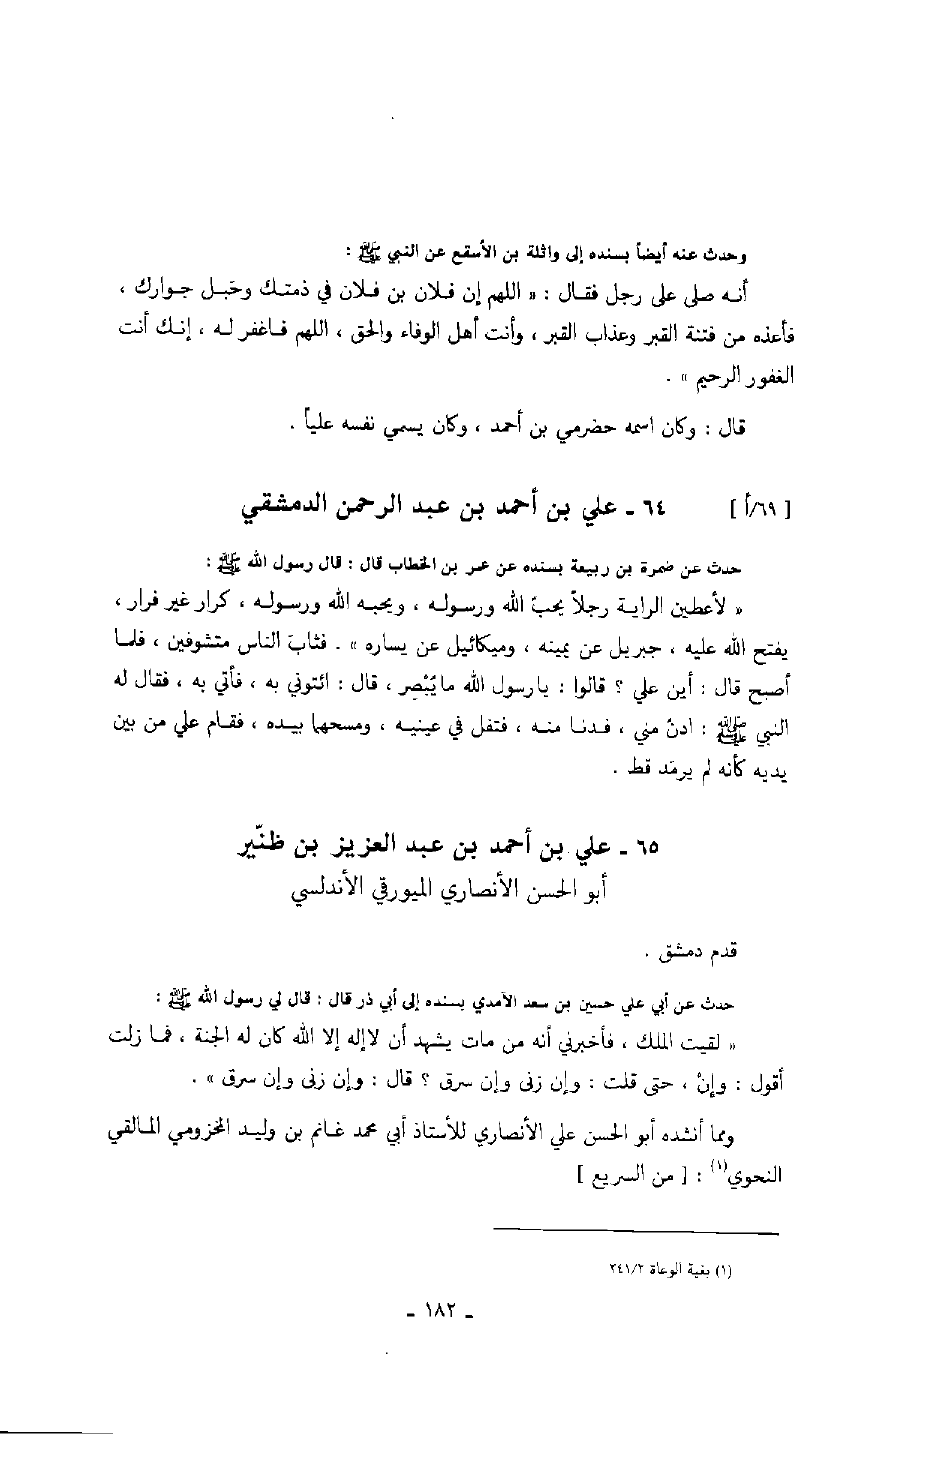 وحدث عنه أيضاً بسنده إلى واثلة بن الأسقع عن النبي ﷺ :
أنه صلى على رجل فقال : « اللهم إن فلان بن فلان في ذمتك وحَبل جوارك ،
فأعذه من فتنة القبر وعذاب القبر ، وأنت أهل الوفاء والحق ، اللهم فاغفر له ، إنك أنت
الغفور الرحيم » .
قال : وكان اسمه حضرمي بن أحمد ، وكان يسمي نفسه علياً .
[ ٦٩/أ ] ٦٤ ـ علي بن أحمد بن عبد الرحمن الدمشقي
حدث عن ضمرة بن ربيعة بسنده عن عمر بن الخطاب قال : قال رسول الله ﷺ :
« لأعطين الراية رجلاً يحبّ الله ورسوله ، ويحبه الله ورسوله ، كرار غير فرار ،
يفتح الله عليه ، جبريل عن يمينه ، وميكائيل عن يساره » . فثابَ الناس متشوفين ، فلما
أصبح قال : أين علي ؟ قالوا : يارسول الله مايُبْصِر ، قال : ائتوني به ، فأتي به ، فقال له
النبي ﷺ : ادنُ مني ، فدنا منه ، فتفل في عينيه ، ومسحها بيده ، فقام علي من بين
يديه كأنه لم يرمَد قط .
٦٥ ـ علي بن أحمد بن عبد العزيز بن ظنّير
أبو الحسن الأنصاري الميورقي الأندلسي
قدم دمشق .
حدث عن أبي علي حسين بن سعد الآمدي بسنده إلى أبي ذر قال : قال لي رسول الله ﷺ :
« لقيت الملك ، فأخبرني أنه من مات يشهد أن لاإله إلا الله كان له الجنة ، فما زلت
أقول : وإنْ ، حتى قلت : وإن زنى وإن سرق ؟ قال : وإن زنى وإن سرق » .
ومما أنشده أبو الحسن علي الأنصاري للأستاذ أبي محمد غانم بن وليد المخزومي المالقي
النحوي(١) : [ من السريع ]
(١) بغية الوعاة ٢٤١/٢
ـ ١٨٢ ـ